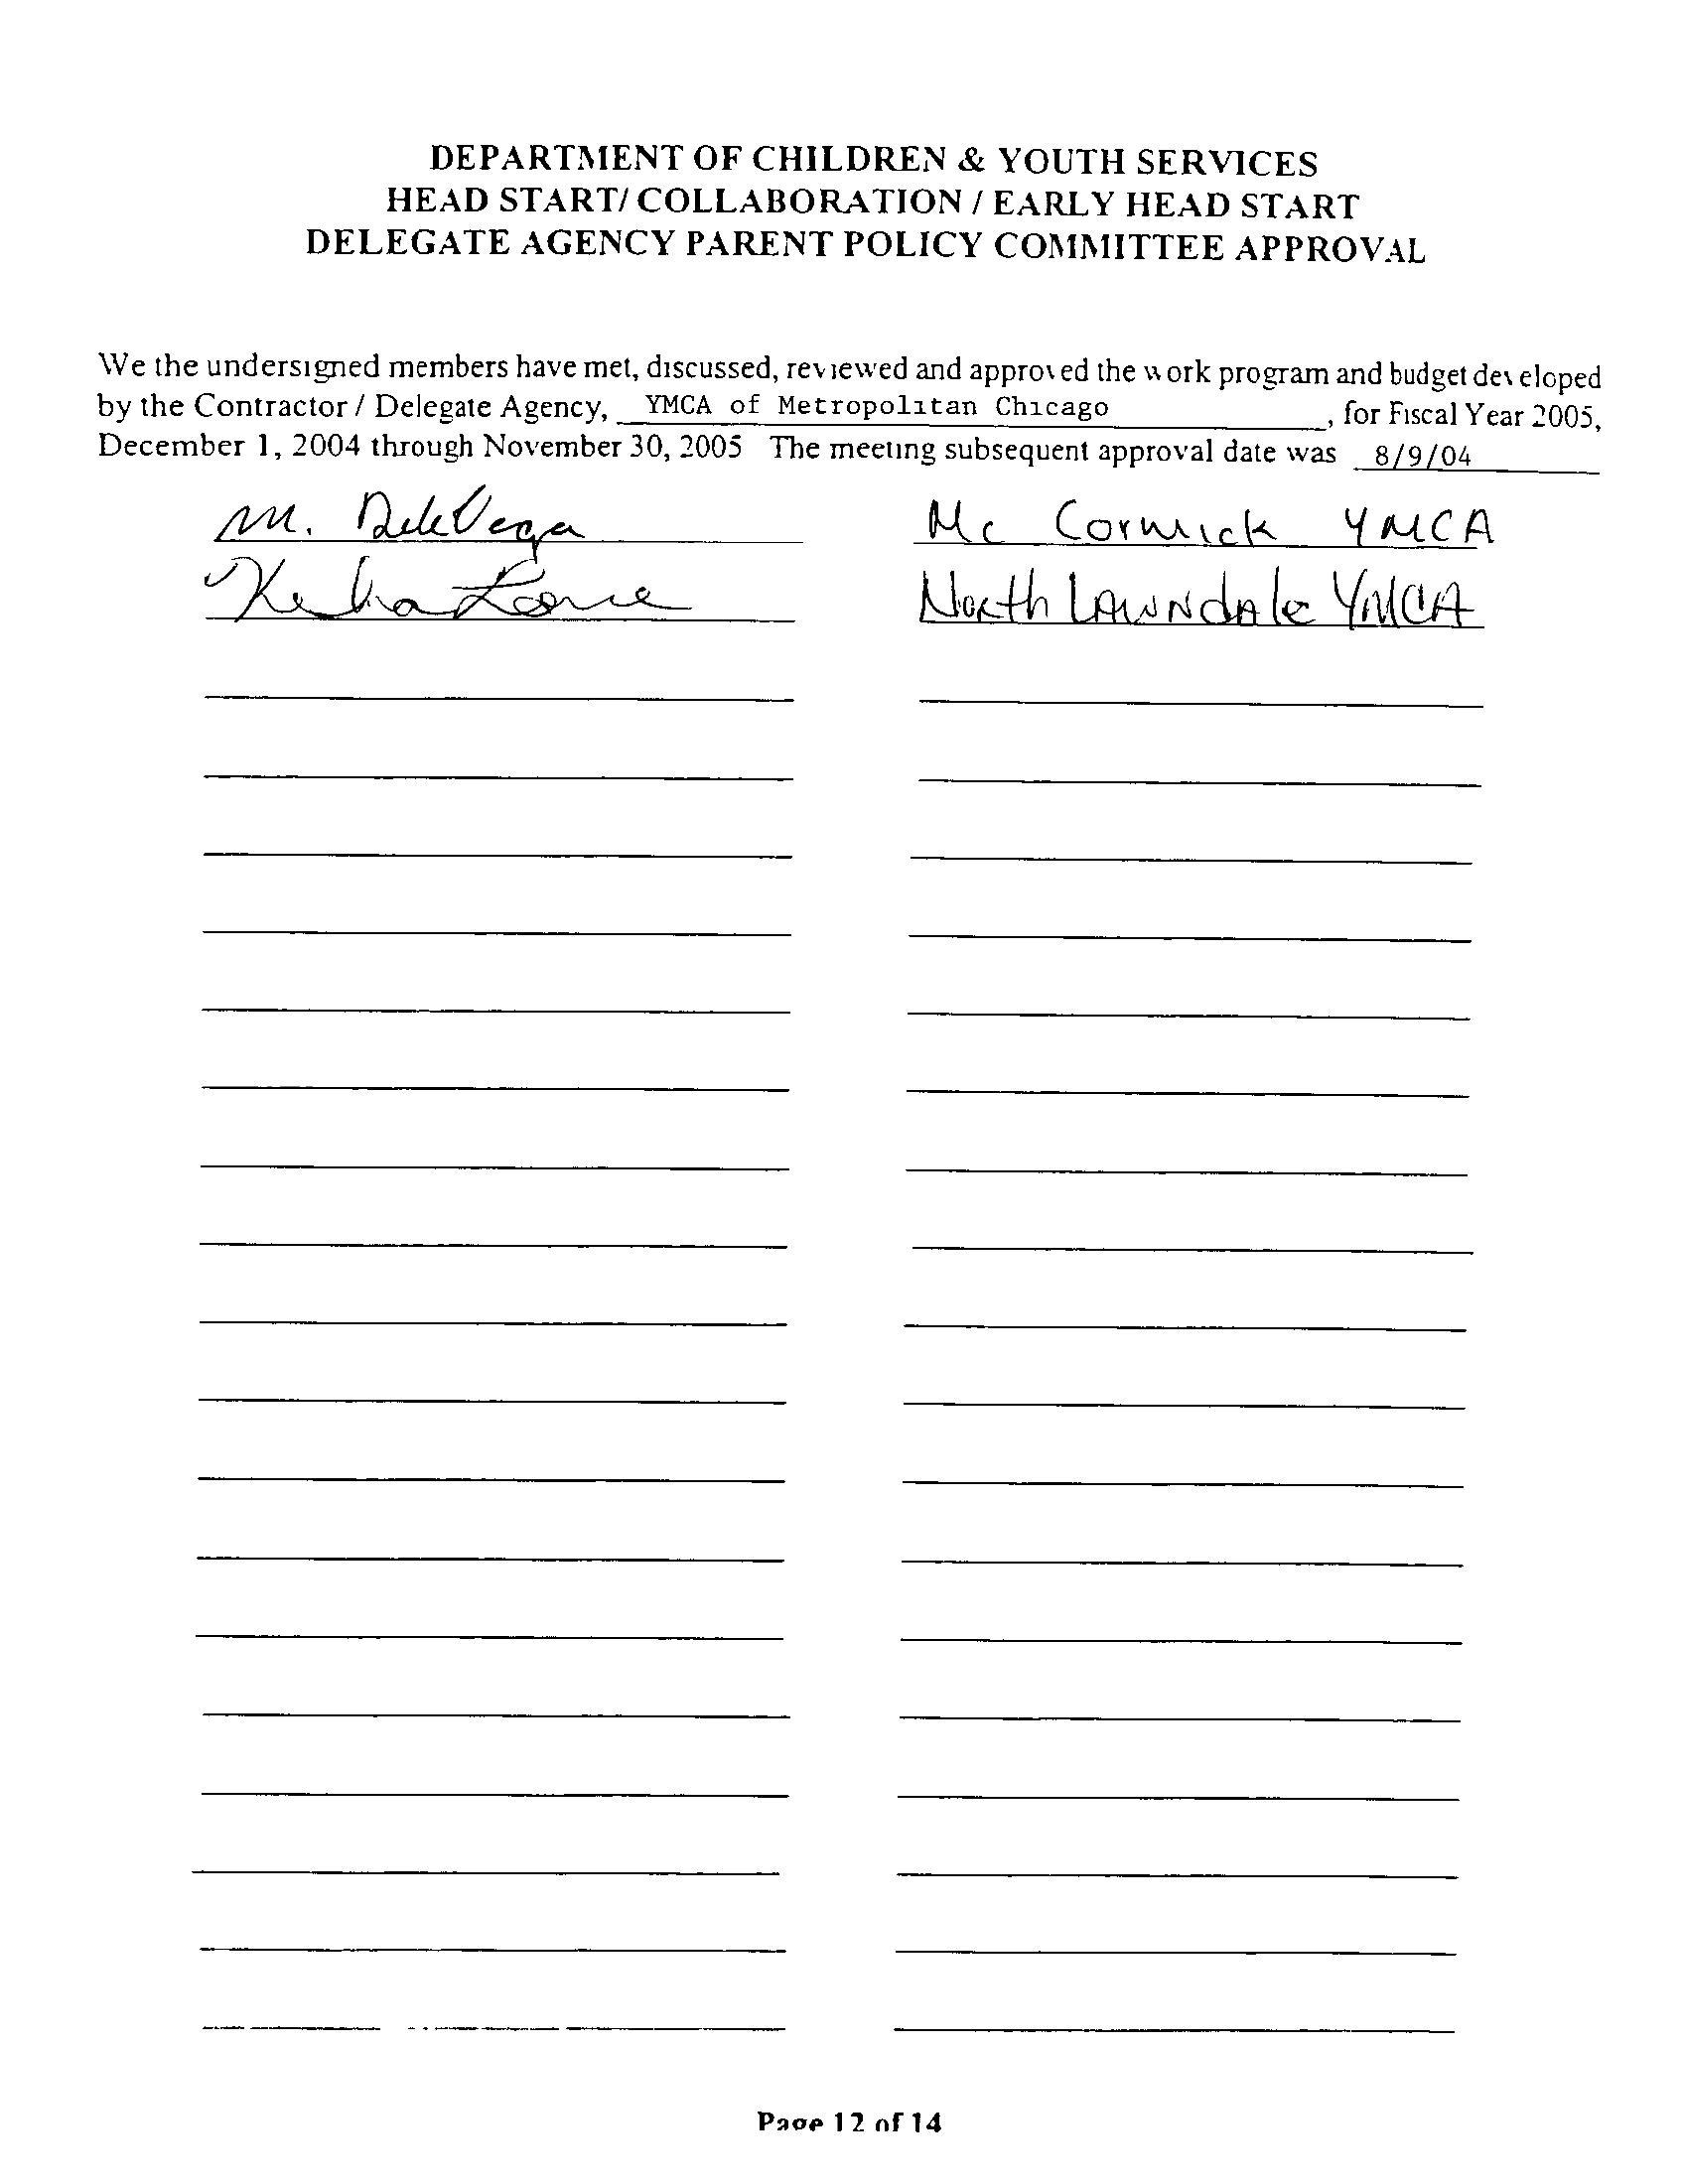 DEPARTMENT OF CHILDREN & YOUTH SERVICES
HEAD START/ COLLABORATION / EARLY HEAD START
DELEGATE AGENCY PARENT POLICY COMMITTEE APPROVAL
We the undersigned members have met, discussed, reviewed and approved the work program and budget developed
by the Contractor / Delegate Agency, YMCA of Metropolitan Chicago, for Fiscal Year 2005,
December 1, 2004 through November 30, 2005 The meeting subsequent approval date was 8/9/04
M. DeleVega Mc Cormick YMCA
North Lawndale YMCA
Page 12 of 14